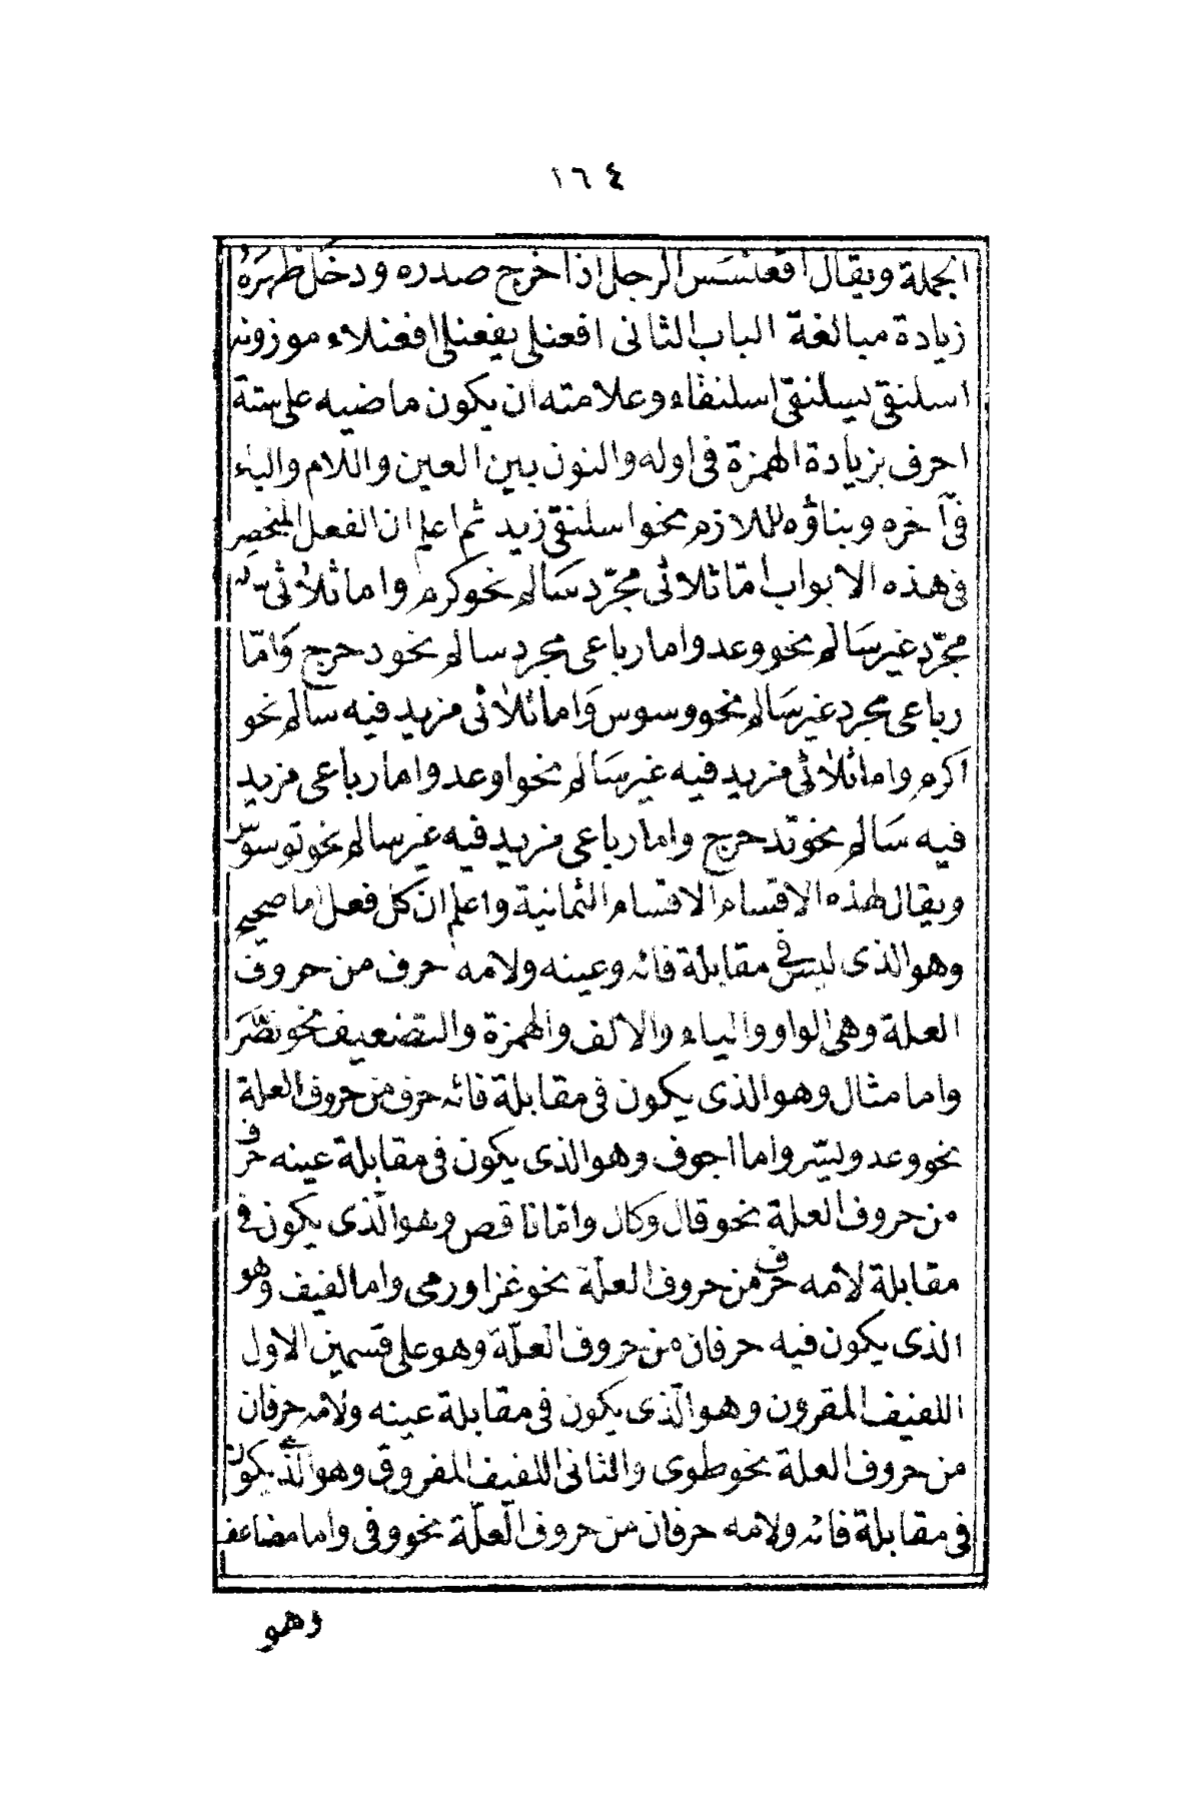 ١٦٤
الجملة ويقال اقعنسَس الرجل اذا خرج صدره ودخل ظهرَهُ
زيادة مبالغة الباب الثانى افعنلى يفعنلى افعنلاء موزونه
اسلنقى يسلنقى اسلنقاء وعلامته ان يكون ماضيه على ستة
احرف بزيادة الهمزة فى اوله والنون بين العين واللام والياء
فى آخره وبناؤه لللازم نحو اسلنقى زيد ثم اعلم ان الفعل المنحصر
فى هذه الابواب امّا ثلاثى مجرّد سَالم نحو كرم واما ثلاثى
مجرّد غير سَالم نحو وعد واما رباعى مجرد سالم نحو دحرج وَامّا
رباعى مجرد غير سَالم نحو وسوس وَاما ثلاثى مزيد فيه سالم نحو
اكرم واما ثلاثى مزيد فيه غير سَالم نحو اوعد واما رباعى مزيد
فيه سَالم نحو تدحرج واما رباعى مزيد فيه غير سالم نحو توسوس
ويقال لهذه الاقسام الاقسام الثمانية واعلم ان كل فعل اما صحيح
وهو الذى ليس فى مقابلة فائه وعينه ولامه حرف من حروف
العلة وهى الواو والياء والالف والهمزة والتضعيف نحو نصَرَ
واما مثال وهو الذى يكون فى مقابلة فائه حرف من حروف العلة
نحو وعد ويسّر واما اجوف وهو الذى يكون فى مقابلة عينه حرف
من حروف العلة نحو قال وكال وامّا ناقص وهو الّذى يكون فى
مقابلة لامه حرف من حروف العلّة نحو غزا ورمى واما لفيف وهو
الذى يكون فيه حرفان من حروف العلّة وهو على قسمين الاول
اللفيف المقرون وهو الّذى يكون فى مقابلة عينه ولامه حرفان
من حروف العلة نحو طوى والثانى اللفيف المفروق وهو الذى يكون
فى مقابلة فائه ولامه حرفان من حروف الّعلّة نحو وفى واما مضاعف
وهو